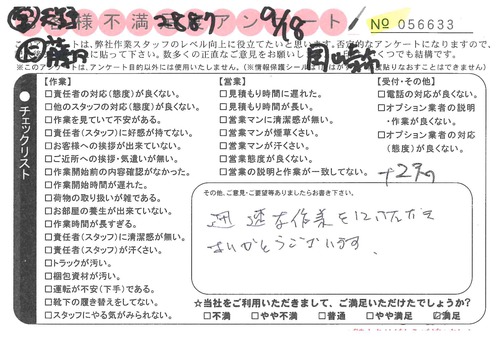 お客様不満足度アンケート
2887
9/18
No 056633
アンケートは、弊社作業スタッフのレベル向上に役立てたいと思います。否定的なアンケートになりますので、
に貼って下さい。数多くの正直なご意見をお願いし
くつでも結構です。
※このアンケートは、アンケート目的以外には使用いたしません。(※情報保護シール
貼りなおすことはできません)
チェックリスト
【作業】
□責任者の対応(態度)が良くない。
□他のスタッフの対応(態度)が良くない。
□作業を見ていて不安がある。
□責任者(スタッフ)に好感が持てない。
□お客様への挨拶が出来ていない。
□ご近所への挨拶・気遣いが無い。
□作業開始前の内容確認がなかった。
□作業開始時間が遅れた。
□荷物の取り扱いが雑である。
□お部屋の養生が出来ていない。
□作業時間が長すぎる。
□責任者(スタッフ)に清潔感が無い。
□責任者(スタッフ)が汗くさい。
□トラックが汚い。
□梱包資材が汚い。
□運転が不安(下手)である。
□靴下の履き替えをしてない。
□スタッフにやる気がみられない。
【営業】
□見積もり時間に遅れた。
□見積もり時間が長い。
□営業マンに清潔感が無い。
□営業マンが煙草くさい。
□営業マンが汗くさい。
□営業態度が良くない。
□営業の説明と作業が一致してない。
【受付・その他】
□電話の対応が良くない。
□オプション業者の説明
・作業が良くない。
□オプション業者の対応
(態度)が良くない。
その他、ご意見・ご要望等ありましたらお書き下さい。
迅速な作業をしていただき
ありがとうございます。
☆当社をご利用いただきまして、ご満足いただけたでしょうか?
□不満 □やや不満 □普通 □やや満足 ☑満足